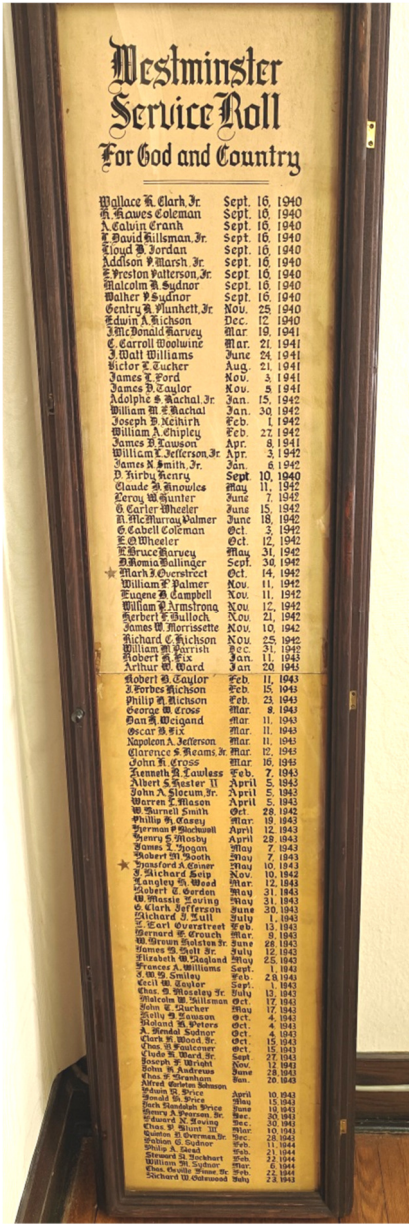 Westminster
Service Roll
For God and Country
Wallace R. Clark, Jr. Sept. 16, 1940
R. Hawes Coleman Sept. 16, 1940
A. Calvin Crank Sept. 16, 1940
L. David Hillsman, Jr. Sept. 16, 1940
Lloyd B. Jordan Sept. 16, 1940
Addison P. Marsh, Jr. Sept. 16, 1940
E. Preston Patterson, Jr. Sept. 16, 1940
Malcolm R. Sydnor Sept. 16, 1940
Walker P. Sydnor Sept. 16, 1940
Gentry R. Plunkett, Jr. Nov. 25, 1940
Edwin A. Hickson Dec. 12 1940
J. McDonald Harvey Mar. 19, 1941
C. Carroll Woolwine Mar. 21, 1941
J. Watt Williams June 24, 1941
Victor L. Tucker Aug. 21, 1941
James L. Ford Nov. 3, 1941
James D. Taylor Nov. 5, 1941
Adolphe S. Rachal, Jr. Jan. 15, 1942
William M. E. Rachal Jan. 30, 1942
Joseph D. Neikirk Feb. 1, 1942
William A. Chipley Feb. 27, 1942
James D. Lawson Apr. 8, 1941
William L. Jefferson, Jr. Apr. 3, 1942
James N. Smith, Jr. Jan. 6, 1942
D. Kirby Henry Sept. 10, 1940
Claude B. Knowles May 11, 1942
Leroy W. Hunter June 7, 1942
G. Carter Wheeler June 15, 1942
R. McMurray Palmer June 18, 1942
G. Cabell Coleman Oct. 3, 1942
E. O. Wheeler Oct. 12, 1942
E. Bruce Harvey May 31, 1942
D. Romia Ballinger Sept. 30, 1942
Mark J. Overstreet Oct. 14, 1942
William F. Palmer Nov. 11, 1942
Eugene B. Campbell Nov. 11, 1942
William P. Armstrong Nov. 12, 1942
Herbert F. Bullock Nov. 21, 1942
James W. Morrissette Nov. 10, 1942
Richard C. Hickson Nov. 25, 1942
William M. Parrish Dec. 31, 1942
Robert R. Fix Jan. 11, 1943
Arthur W. Ward Jan 20 1943
Robert B. Taylor Feb. 11, 1943
J. Forbes Hickson Feb. 15, 1943
Philip R. Hickson Feb. 23, 1943
George W. Cross Mar. 8, 1943
Dan R. Weigand Mar. 11, 1943
Oscar B. Fix Mar. 11, 1943
Napoleon A. Jefferson Mar. 11, 1943
Clarence S. Reams, Jr. Mar. 12, 1943
John R. Cross Mar. 16, 1943
Kenneth R. Lawless Feb. 7, 1943
Albert S. Hester II April 5, 1943
John A. Slocum, Jr. April 5, 1943
Warren L. Mason April 5, 1943
W. Burnell Smith Oct. 28, 1942
Phillip R. Casey Mar. 19, 1943
Herman P. Blackwell April 12, 1943
Henry S. Mosby April 28, 1943
James L. Hogan May 7, 1943
Robert M. Booth May 7, 1943
Hansford A. Coiner May 10, 1943
J. Richard Seip Nov. 10, 1942
Langley H. Wood Mar. 12, 1943
Robert T. Gordon May 31, 1943
W. Massie Loving May 31, 1943
G. Clark Jefferson June 30, 1943
Richard J. Lull July 1, 1943
L. Earl Overstreet Feb. 13, 1943
Bernard E. Crouch Mar. 9, 1943
W. Brown Holston Jr. June 28, 1943
James B. Holt Jr. July 12, 1943
Elizabeth W. Ragland May 25, 1943
Frances A. Williams Sept. 1, 1943
J. W. B. Smiley Feb. 28, 1943
Cecil W. Taylor Sept. 1, 1943
Chas. B. Moseley Jr. July 13, 1943
Malcolm W. Hillsman Oct. 17, 1943
John T. Tucker May 17, 1943
Kelly B. Lawson Oct. 4, 1943
Roland R. Peters Oct. 4, 1943
A. Kendal Sydnor Oct. 4, 1943
Clark H. Wood, Jr. Oct. 15, 1943
Chas. B. Faulconer Oct. 15, 1943
Clyde R. Ward, Jr. Sept. 27, 1943
Joseph F. Wright Nov. 12, 1943
John R. Andrews June 28, 1943
Chas. F. Branham Jan. 20, 1943
Alfred Carleton Johnson
Edwin R. Price April 10, 1943
Donald R. Price May 15, 1943
Jack Randolph Price June 19, 1943
Henry A. Pearson, Jr. Dec. 30, 1943
Edward N. Loving Dec. 30, 1943
Chas. P. Blunt III Mar. 10, 1943
Quinton D. Overman, Jr. Dec. 28, 1943
Fabian G. Sydnor Feb. 11, 1944
Philip A. Mead Feb. 21, 1944
Steward N. Lockhart Feb. 22, 1944
William M. Sydnor Mar. 6, 1944
Chas. Neville Jr. Feb. 22, 1944
Richard W. Gatewood July 23, 1943